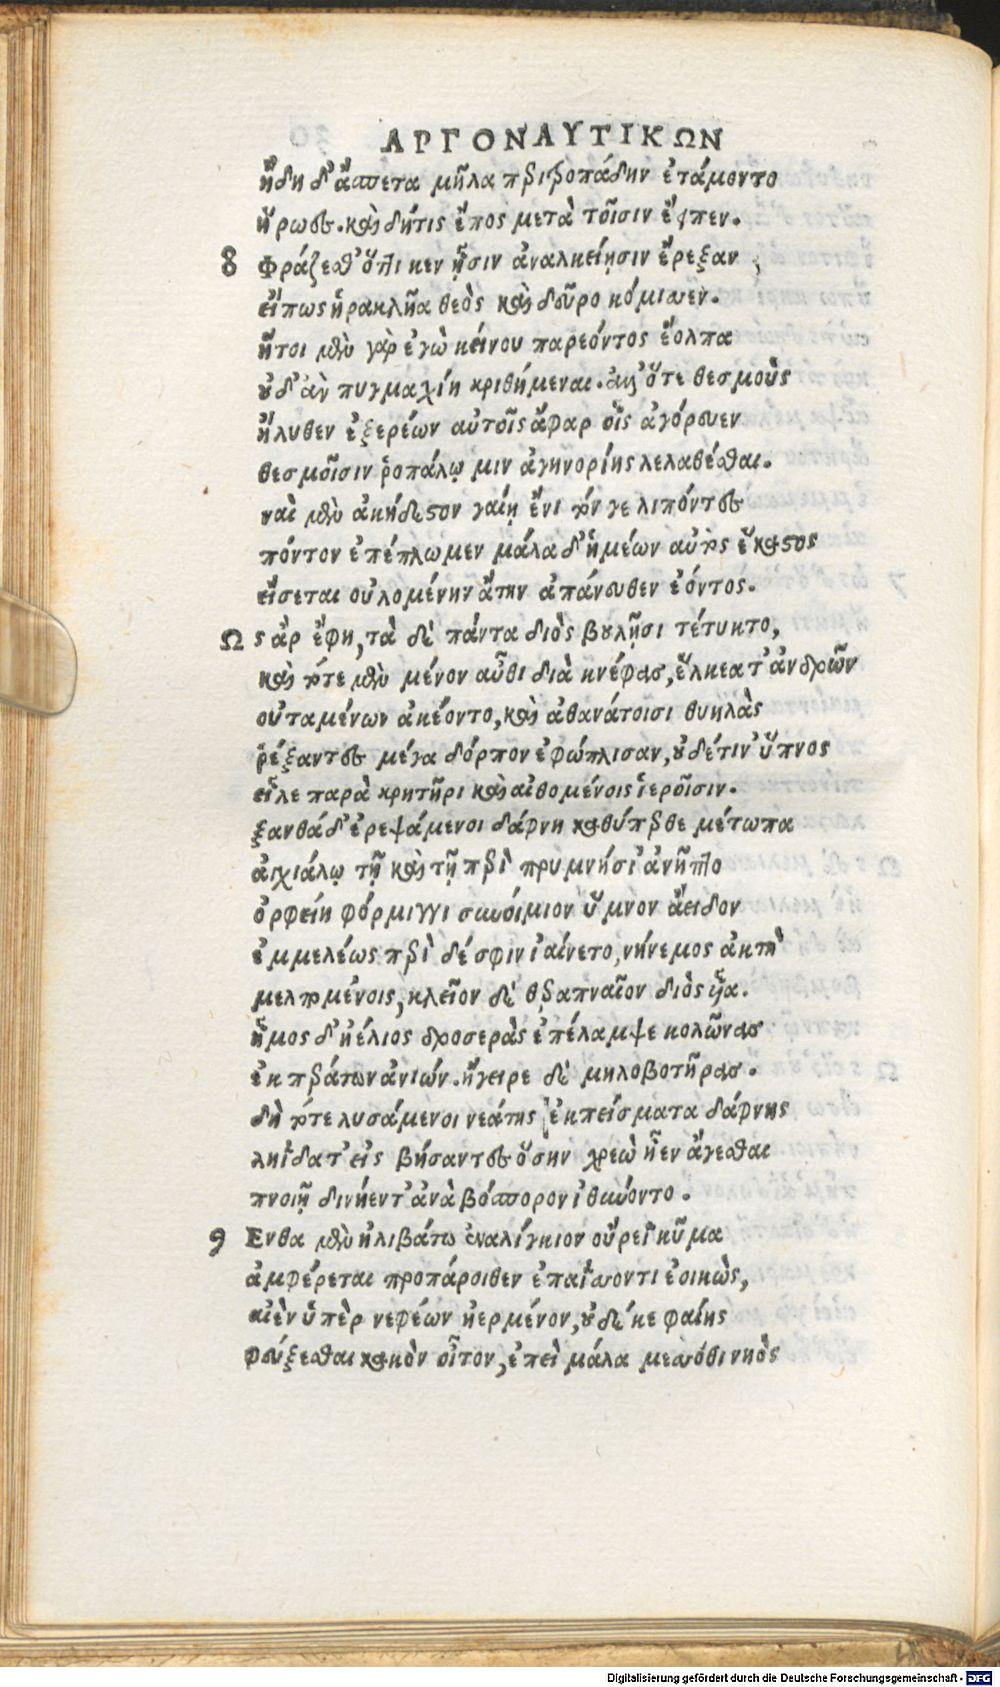 ΑΡΓΟΝΑΥΤΙΚΩΝ
ἤδη δ' ἄσπετα μῆλα περιτροπάδην ἐτάμοντο
ἥρωες. καὶ δήτις ἔπος μετὰ τοῖσιν ἔειπεν.
8 Φράζεσθ' ὅττι κεν ᾗσιν ἀναλκείῃσιν ἔρεξαν
εἴπως ἡρακλῆα θεὸς καὶ δεῦρο κόμισσεν.
ἤτοι μὲν γὰρ ἐγὼ κείνου παρεόντος ἔολπα
οὐδ' ἂν πυγμαχίῃ κριθήμεναι. ἀλλ' ὅτε θεσμοὺς
ἤλυθεν ἐξερέων αὐτοῖς ἄφαρ οἷς ἀγόρευεν
θεσμοῖσιν ῥοπάλῳ μιν ἀγηνορίης λελαθέσθαι.
ναὶ μὲν ἀκήδεστον γαίῃ ἔνι τόν γε λιπόντες
πόντον ἐπέπλωμεν μάλα δ' ἡμέων αὐτὸς ἕκαστος
εἴσεται οὐλομένην ἄτην ἀπάνευθεν ἐόντος.
Ως ἀρ ἔφη, τὰ δὲ πάντα διὸς βουλῇσι τέτυκτο,
καὶ τότε μὲν μένον αὖθι διὰ κνέφας, ἕλκεα τ' ἀνδρῶν
οὐταμένων ἀκέοντο, καὶ ἀθανάτοισι θυηλὰς
ῥέξαντες μέγα δόρπον ἐφώπλισαν, οὐδέτιν' ὕπνος
εἷλε παρὰ κρητῆρι καὶ αἰθομένοις ἱεροῖσιν.
ξανθὰ δ' ἐρεψάμενοι δάφνῃ καθύπερθε μέτωπα
ἀιχιάλῳ τῇ καὶ τῇ περὶ πρυμνήσι' ἀνῆπτο
ὀρφείῃ φόρμιγγι συνοίμιον ὕμνον ἄειδον
ἐμμελέως περὶ δέ σφιν ἰαίνετο, νήνεμος ἀκτὴ
μελπομένοις, κλεῖον δὲ θεραπναῖον διὸς υἷα.
ἦμος δ' ἠέλιος δροσερὰς ἐπέλαμψε κολώνας
ἐκ περάτων ἀνιών. ἤγειρε δὲ μηλοβοτῆρας.
δὴ τότε λυσάμενοι νεάτης ἐκ πείσματα δάφνης
ληΐδα τ' εἰς βήσαντες ὅσην χρεὼ ἦεν ἄγεσθαι
πνοιῇ δινήεντ' ἀνὰ βόσπορον ἰθύνοντο.
9 Ενθα μὲν ἠλιβάτῳ ἐναλίγκιον οὔρεϊ κῦμα
ἀμφέρεται προπάροιθεν ἐπαΐσσοντι ἐοικὼς,
αἰὲν ὑπὲρ νεφέων ἠερμένον, οὐδέ κε φαίης
φεύξεσθαι κακὸν οἶτον, ἐπεὶ μάλα μεσσόθι νηὸς
Digitalisierung gefördert durch die Deutsche Forschungsgemeinschaft - DFG